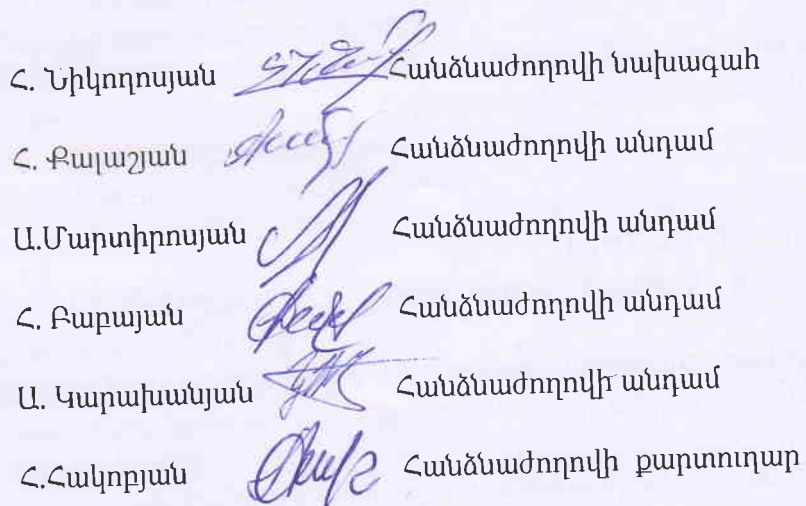 Հ. Նիկողոսյան Հանձնաժողովի նախագահ
Հ. Քալաշյան Հանձնաժողովի անդամ
Ա.Մարտիրոսյան Հանձնաժողովի անդամ
Հ. Բաբայան Հանձնաժողովի անդամ
Ա. Կարախանյան Հանձնաժողովի անդամ
Հ.Հակոբյան Հանձնաժողովի քարտուղար